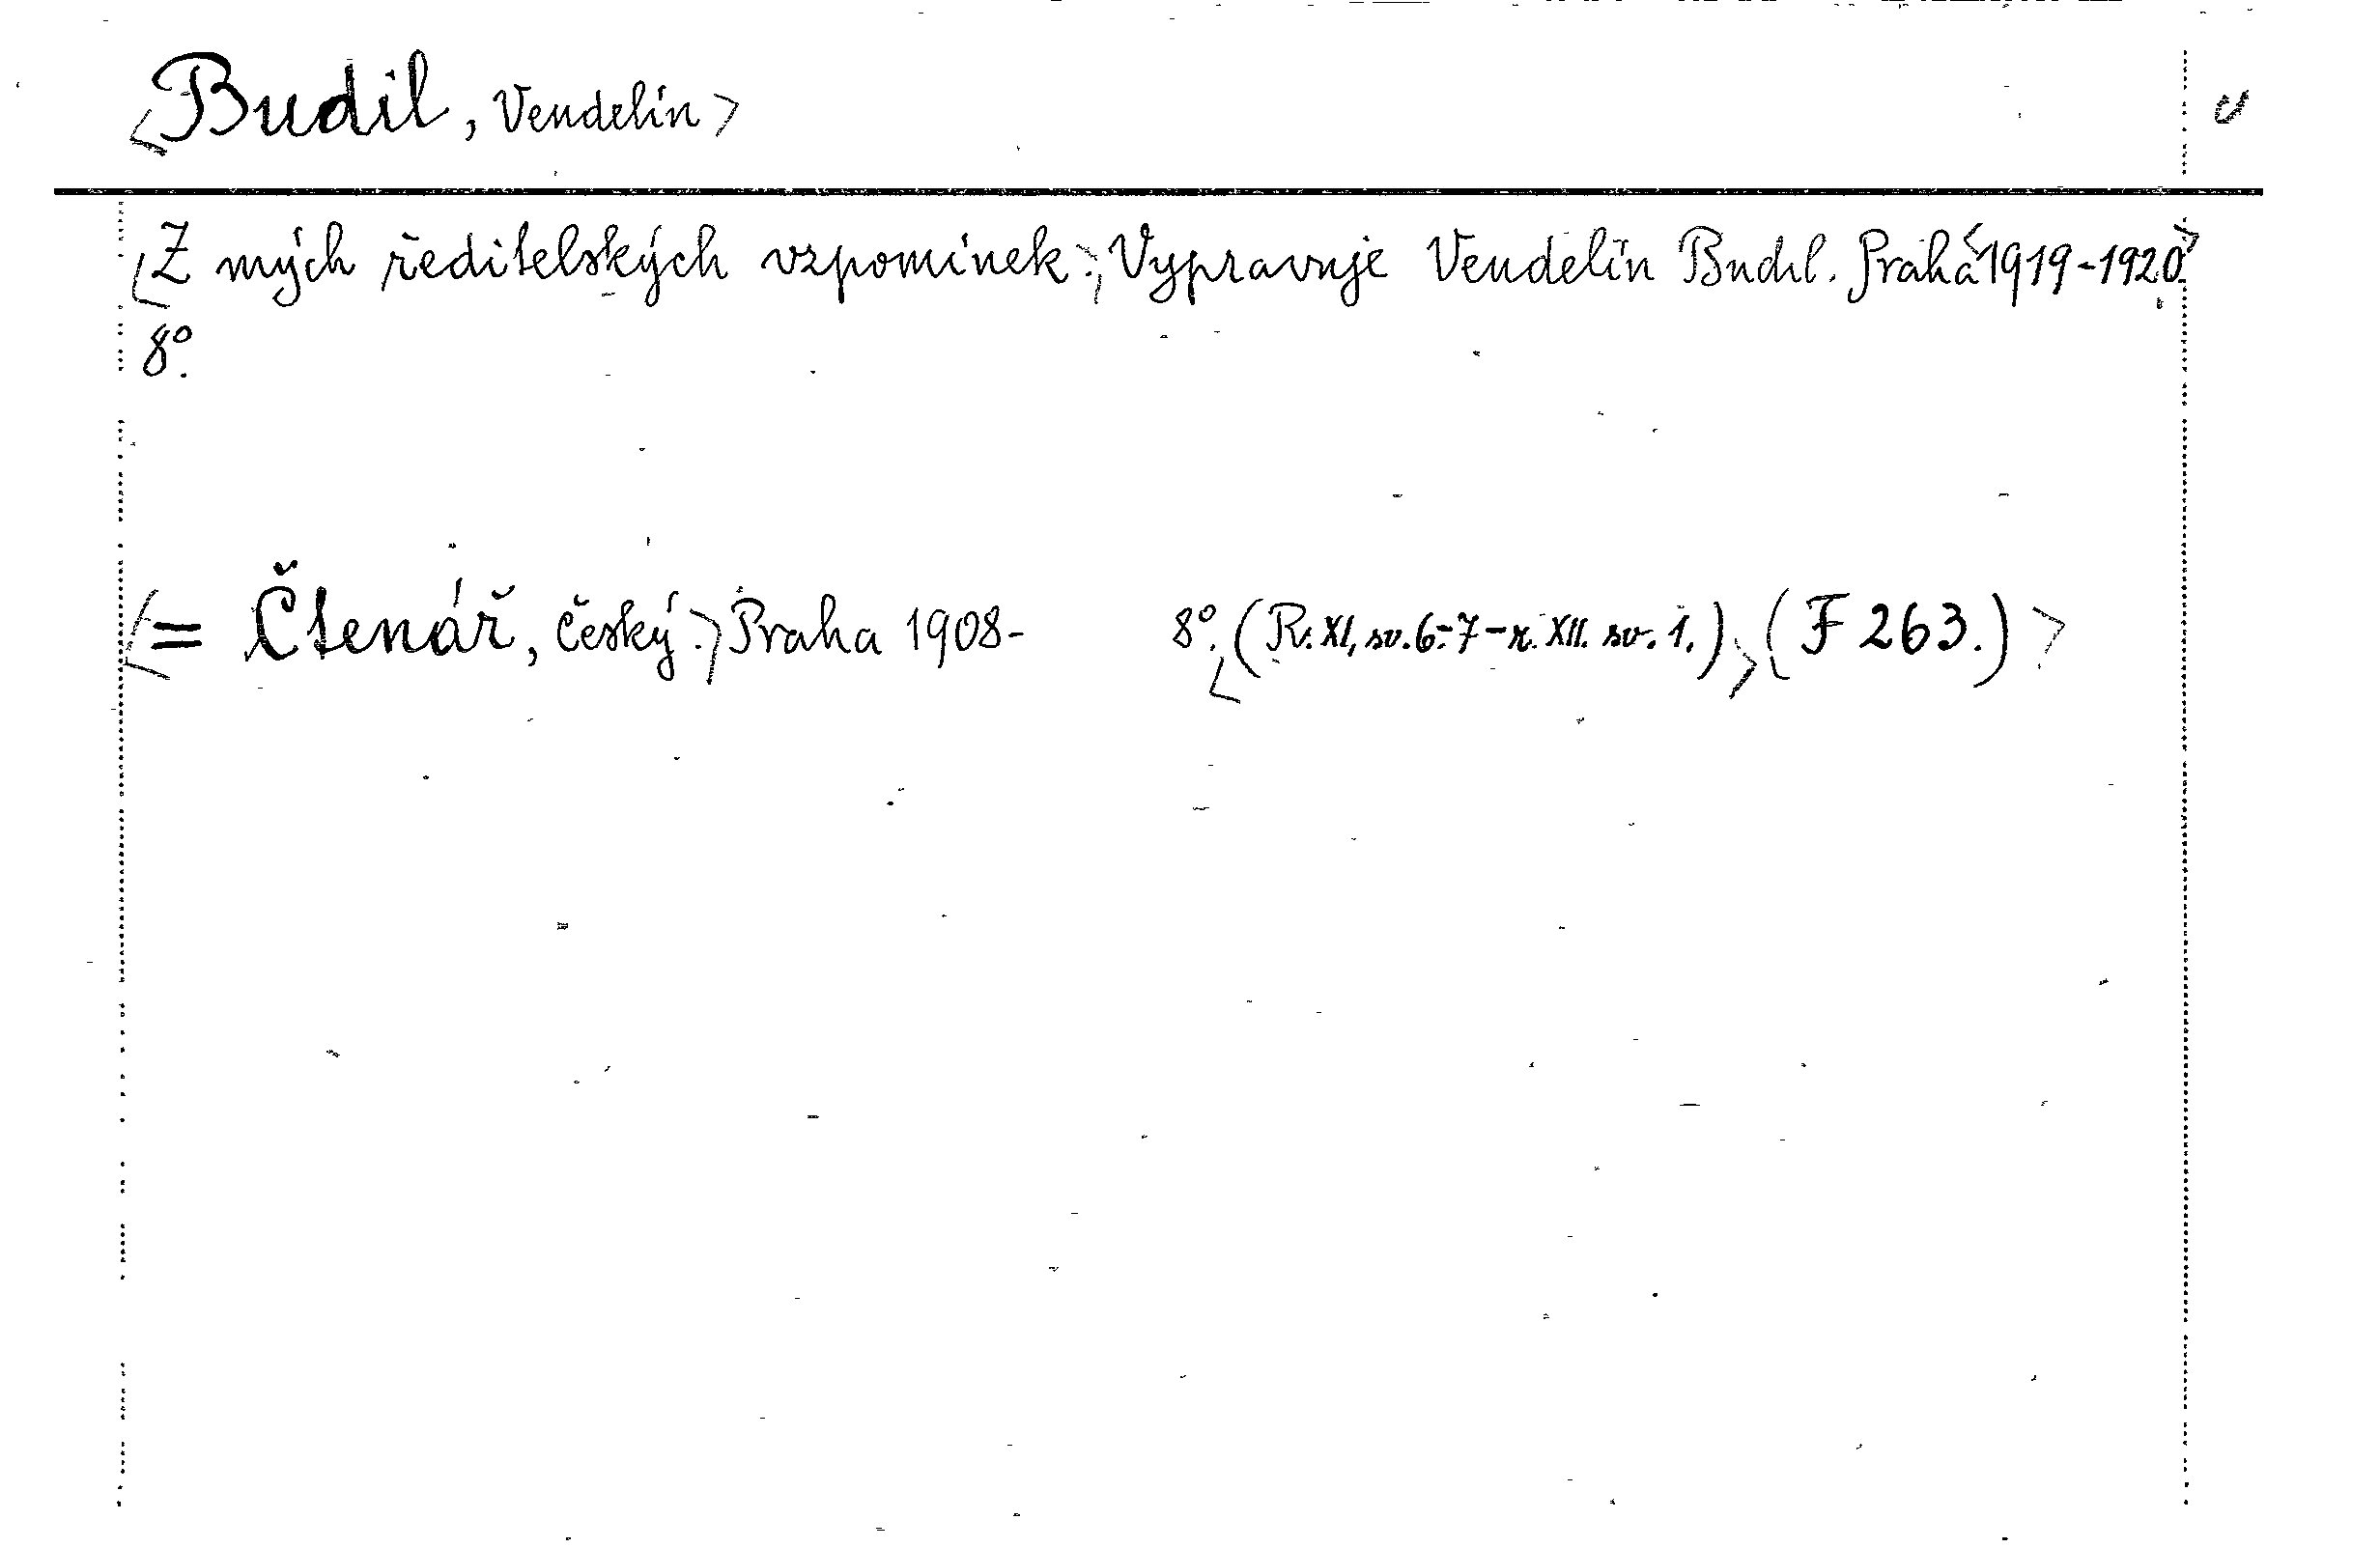 <Budil, Vendelín>
<Z mých ředitelských vzpomínek.> Vypravuje Vendelín Budil. Praha <1919-1920.>
8°.
<= Čtenář, český.> Praha 1908- 8°. <(R. XI, sv. 6.-7 - r. XII. sv. 1.)> (F 263.)>